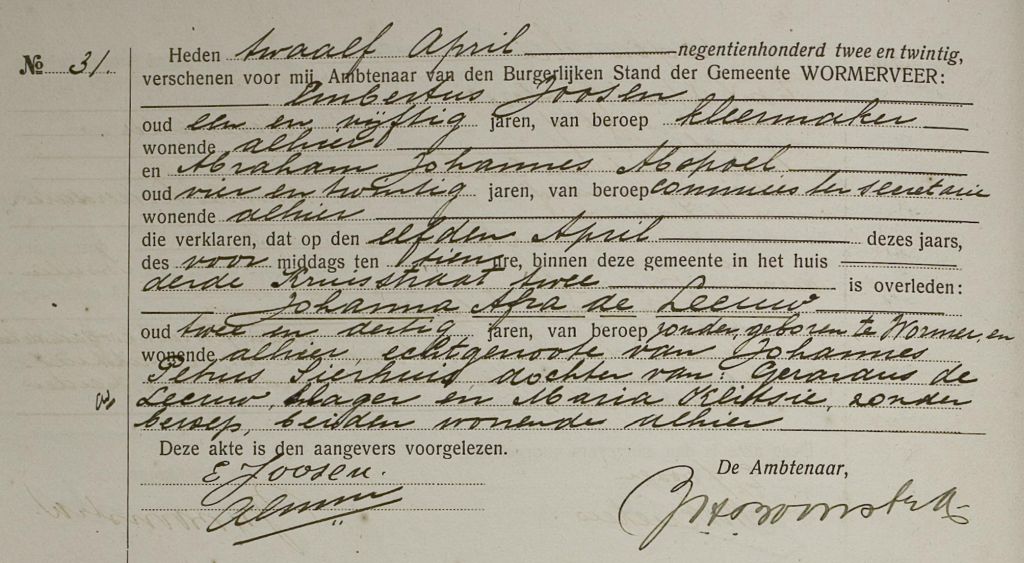 № 31.
Heden twaalf April negentienhonderd twee en twintig,
verschenen voor mij, Ambtenaar van den Burgerlijken Stand der Gemeente WORMERVEER:
Embertus Joosen
oud een en vijftig jaren, van beroep kleermaker
wonende alhier
en Abraham Johannes Abspoel
oud vier en twintig jaren, van beroep commies ter secretarie
wonende alhier
die verklaren, dat op den elfden April dezes jaars,
des voor middags ten tien ure, binnen deze gemeente in het huis
derde Kruisstraat twee is overleden:
Johanna Afra de Leeuw
oud twee en dertig jaren, van beroep zonder, geboren te Wormer, en
wonende alhier, echtgenoote van Johannes
Petrus Sierhuis, dochter van: Gerardus de
Leeuw, slager en Maria Klitsie, zonder
beroep, beiden wonende alhier
Deze akte is den aangevers voorgelezen.
E Joosen.
De Ambtenaar,